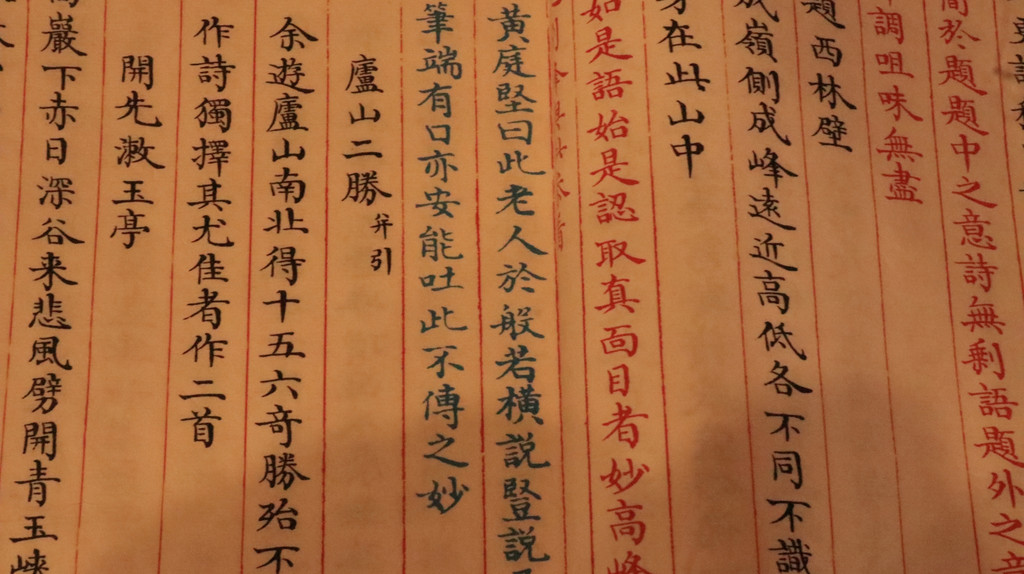 簡於題題中之意詩無剩語題外之音
調咀味無盡
題西林壁
成嶺側成峰遠近高低各不同不識
身在此山中
如是語始是認取真面目者妙高峰
黄庭堅曰此老人於般若横説竪説
筆端有口亦安能吐此不傳之妙
廬山二勝 并引
余遊廬山南北得十五六奇勝殆不
作詩獨擇其尤佳者作二首
開先漱玉亭
高巖下赤日深谷来悲風劈開青玉峽